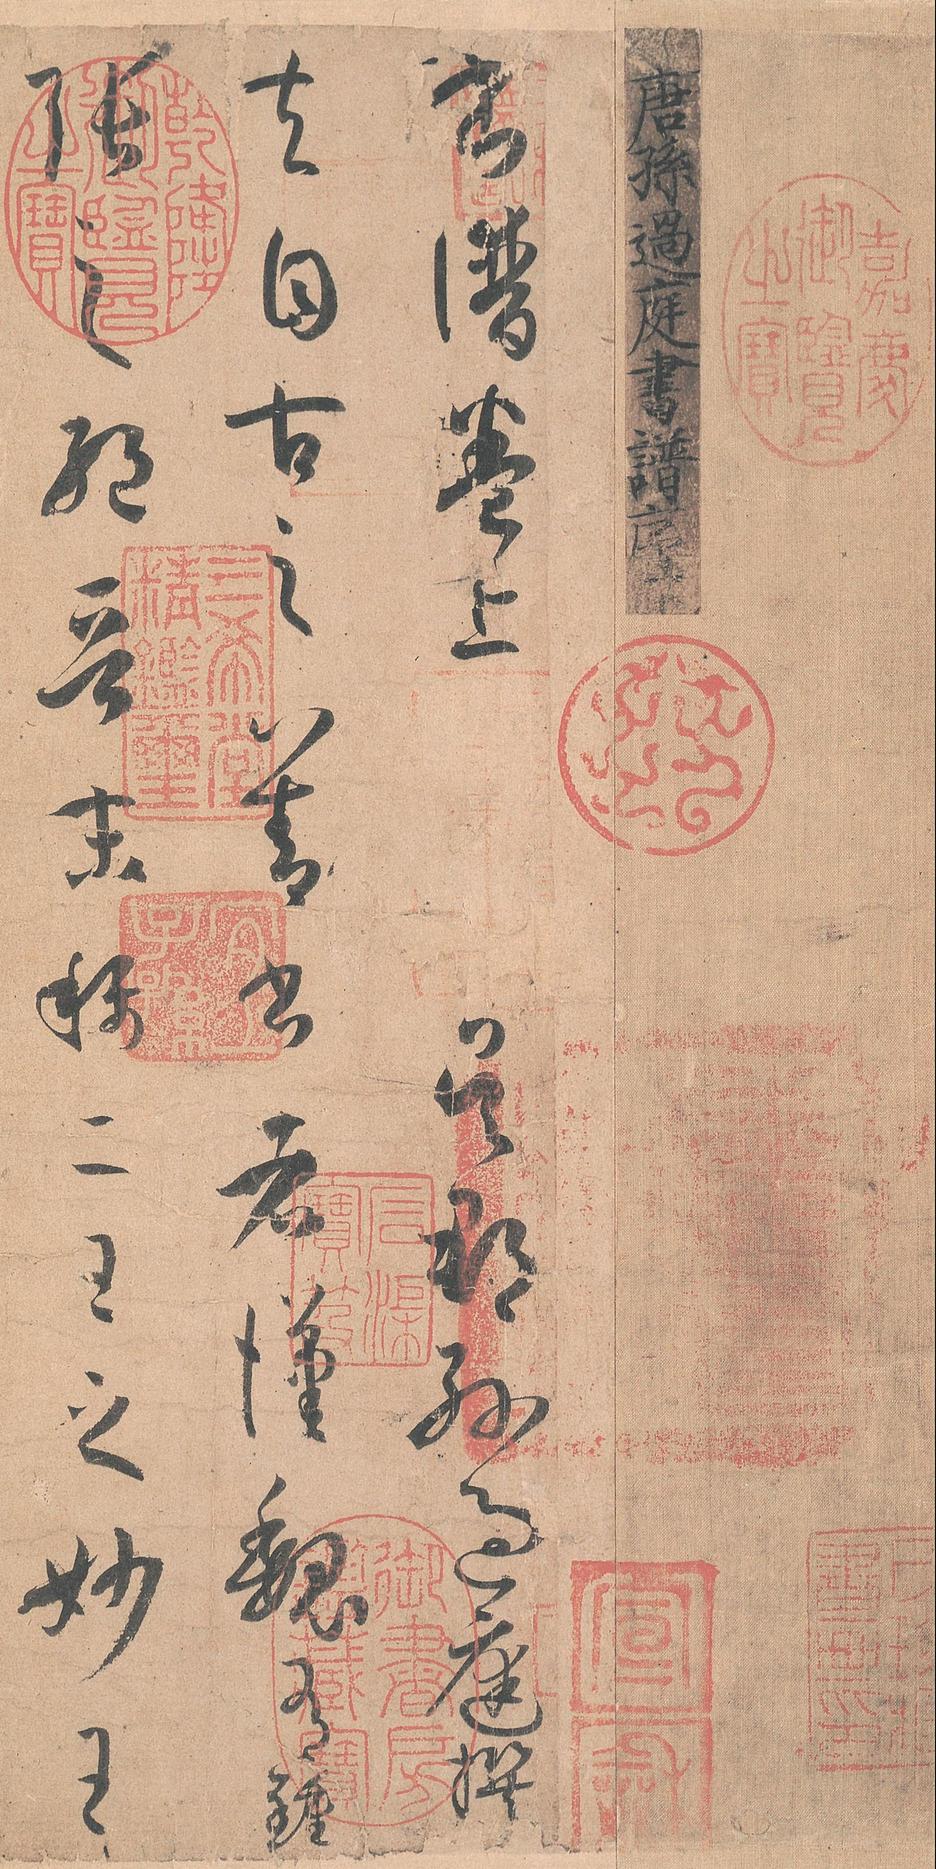 嘉慶御覽之寶
唐孫過庭書譜序
宣和
書譜卷上 吳郡孫過庭撰
夫自古之善書者漢魏有鍾
張之絕晉末稱二王之妙王
乾隆御覽之寶
三希堂精鑑璽
宜子孫
御書房鑑藏寶